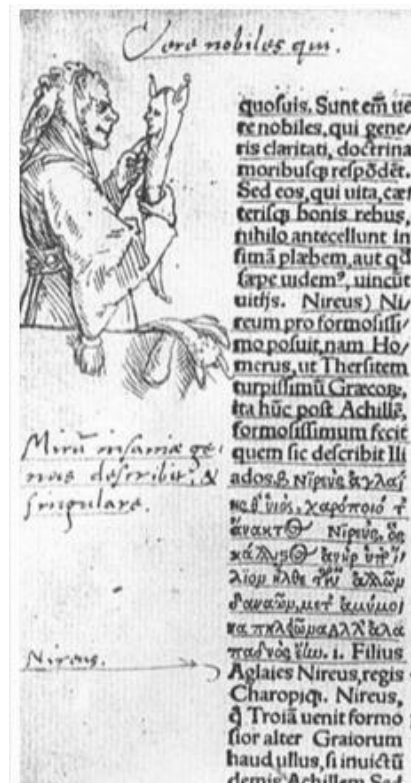 Vere nobiles qui.
quosuis. Sunt em̃ ue
re nobiles, qui gene/
ris claritati, doctrina
moribusq; respõdẽt.
Sed eos, qui uita, cæ
terisq; bonis rebus,
nihilo antecellunt in
fimã plæbem, aut qđ
sæpe uidemꝰ, uincũt
uitijs. Nireus) Ni/
reum pro formosissi/
mo posuit, nam Ho/
merus, ut Thersitem
turpissimũ Græcoꝝ,
ita hũc post Achillẽ,
formosissimum fecit
quem sic describit Ili
ados. β Νῖρευς ἀγλαΐ
υἱὸς, χαρόποιό τ
ἄνακτΘ Νῖρευς, ὃς
ἀνὴρ ὑπ'
ἦλθε
δαναῶμ, μετ' ἀμύμο
ἀλλ' ἀλα
1. Filius
Aglaies Nireus, regis
Charopiq;. Nireus,
q̃ Troiã uenit formo
sior alter Graiorum
haud ullus, si inuictũ
demis Achillem Sed
Mirũ insaniæ ge/
nus describit, &
singulare.
Nireus.